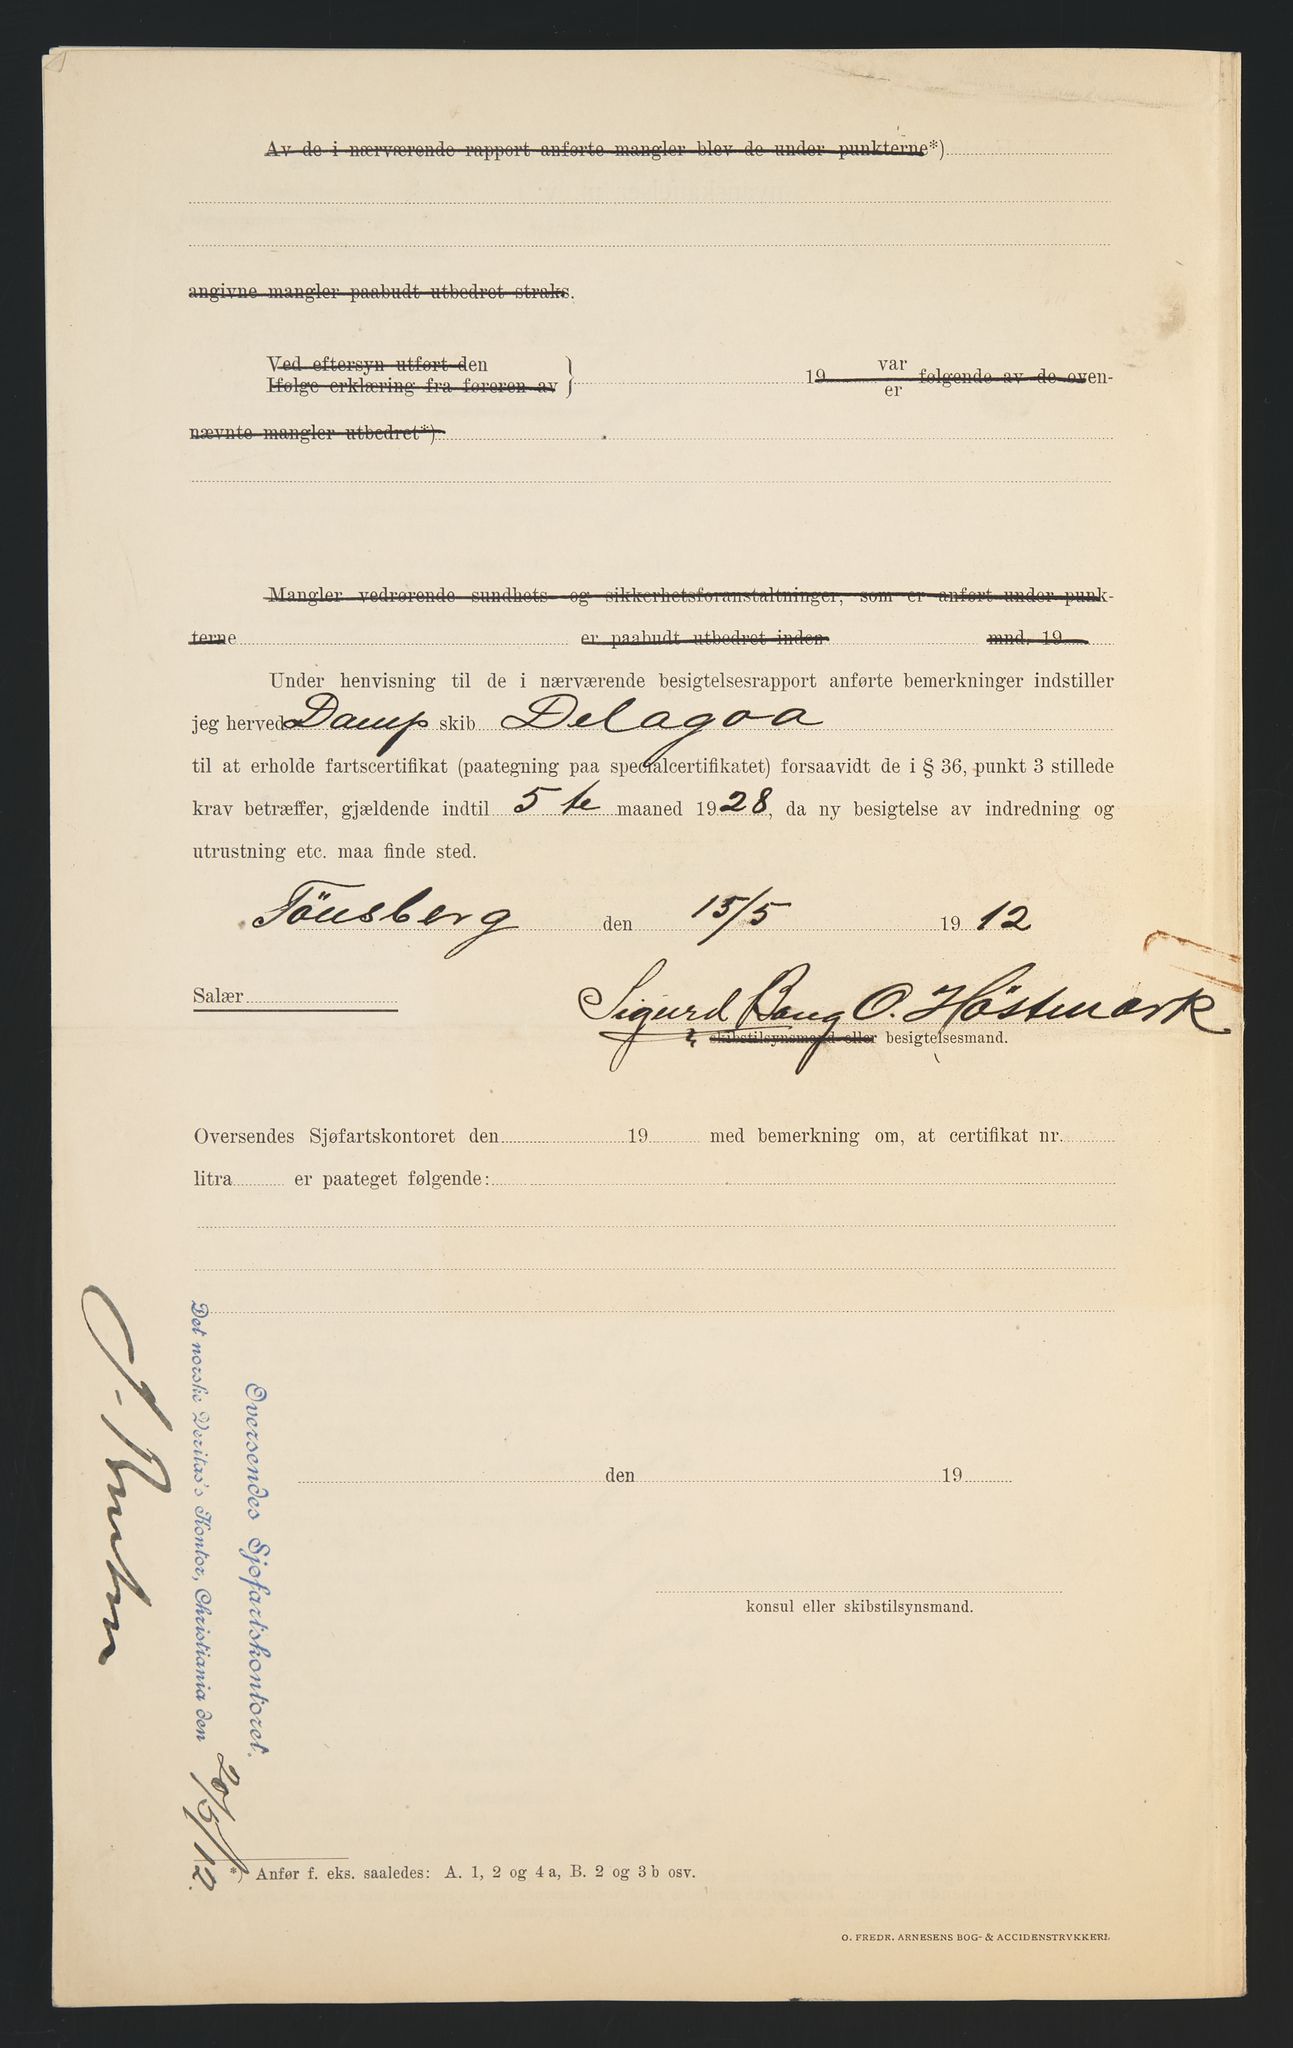 Av de i nærværende rapport anførte mangler blev de under punkterne*)
angivne mangler paabudt utbedret straks.
Ved eftersyn utført den
Ifølge erklæring fra føreren av } 19 var er følgende av de oven-
nævnte mangler utbedret*)
Mangler vedrørende sundhets- og sikkerhetsforanstaltninger, som er anført under punk-
terne er paabudt utbedret inden mnd. 19
Under henvisning til de i nærværende besigtelsesrapport anførte bemerkninger indstiller
jeg herved Damp skib Delagoa
til at erholde fartscertifikat (paategning paa specialcertifikatet) forsaavidt de i § 36, punkt 3 stillede
krav betræffer, gjældende indtil 5 te maaned 1928, da ny besigtelse av indredning og
utrustning etc. maa finde sted.
Tönsberg den 15/5 1912
Salær
Sigurd Bang O. Höstmark
skibstilsynsmand eller besigtelsesmand.
Oversendes Sjøfartskontoret den 19 med bemerkning om, at certifikat nr.
litra er paateget følgende:
den 19
konsul eller skibstilsynsmand.
Oversendes Sjøfartskontoret.
Det norske Veritas's Kontor, Christiania den 20/5/12.
*) Anfør f. eks. saaledes: A. 1, 2 og 4 a, B. 2 og 3 b osv.
O. FREDR. ARNESENS BOG- & ACCIDENSTRYKKERI.